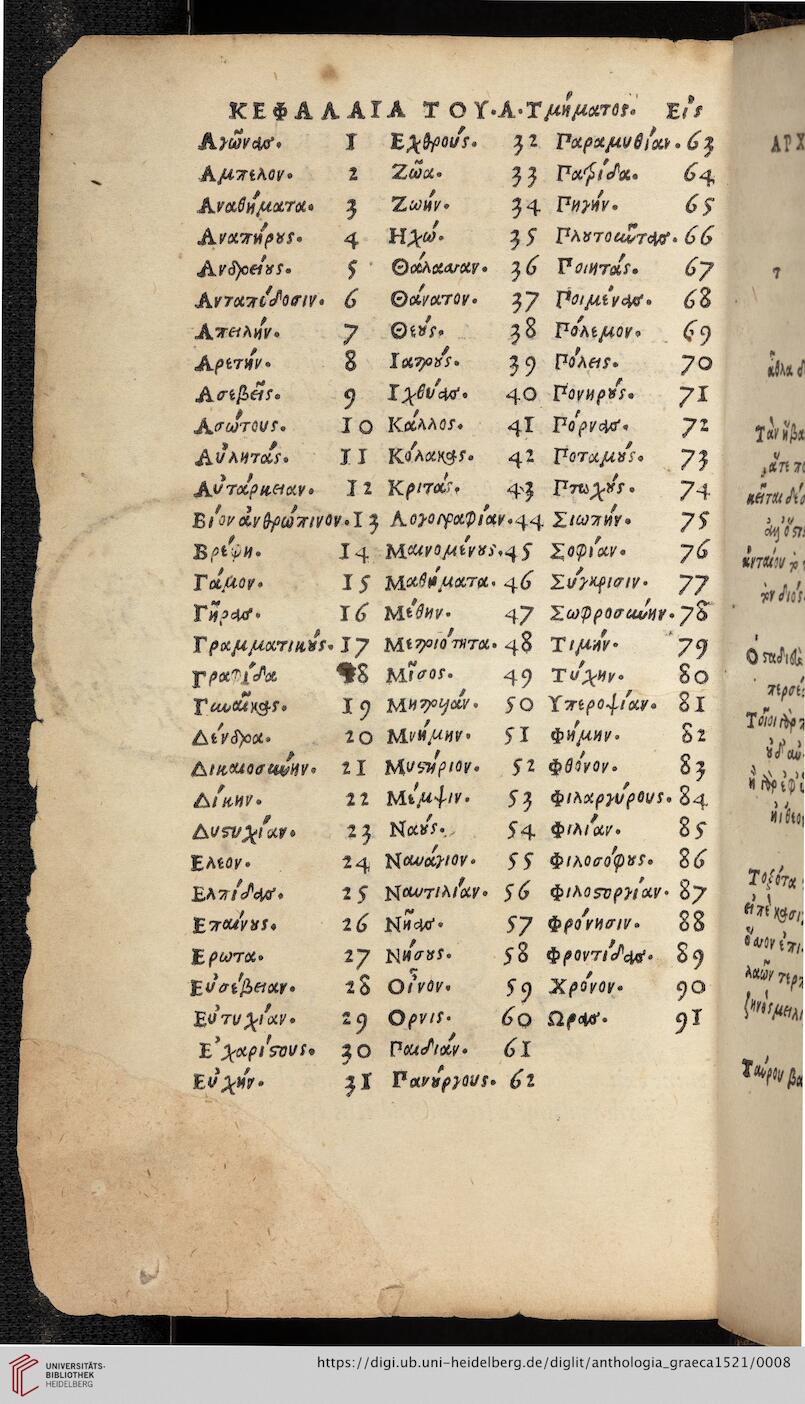 ΚΕΦΑΛΑΙΑ ΤΟΥ·Α·Τμήματος· Εἰς
Αγῶνας· 1
Αμπελον· 2
Αναθήματα· 3
Αναπήρους· 4
Ανδρείους· 5
Ανταπίδοσιν· 6
Απειλήν· 7
Αρετήν· 8
Ασεβεῖς· 9
Ασώτους· 10
Αὐλητάς· 11
Αὐτάρκειαν· 12
Βίον ἀνθρώπινον· 13
Βρέφη· 14
Γάμον· 15
Γῆρας· 16
Γραμματικούς· 17
Γραφίδα 18
Γυναῖκας· 19
Δένδρα· 20
Δικαιοσύνην· 21
Δίκην· 22
Δυστυχίαν· 23
Ελεον· 24
Ελπίδας· 25
Επαίνους· 26
Ερωτα· 27
Εὐσέβειαν· 28
Εὐτυχίαν· 29
Ε᾿χαρίστους· 30
Εὐχήν· 31
Εχθρούς· 32
Ζῶα· 33
Ζωήν· 34
Ηχώ· 35
Θάλασσαν· 36
Θάνατον· 37
Θεούς· 38
Ιατρούς· 39
Ιχθύας· 40
Κάλλος· 41
Κόλακας· 42
Κριτάς· 43
Λογογραφίαν· 44
Μαινομένους· 45
Μαθήματα· 46
Μέθην· 47
Μετριότητα· 48
Μῖσος· 49
Μητρυιάν· 50
Μνήμην· 51
Μυστήριον· 52
Μέμψιν· 53
Ναούς· 54
Ναυάγιον· 55
Ναυτιλίαν· 56
Νῆας· 57
Νήσους· 58
Οἶνον· 59
Ορνις· 60
Παιδιάν· 61
Πανούργους· 62
Παραμυθίαν· 63
Παστίδα· 64
Πηγήν· 65
Πλουτοῦντας· 66
Ποιητάς· 67
Ποιμένας· 68
Πόλεμον· 69
Πόλεις· 70
Πονηρούς· 71
Πόρνας· 72
Ποταμούς· 73
Πτωχούς· 74
Σιωπήν· 75
Σοφίαν· 76
Σύγκρισιν· 77
Σωφροσύνην· 78
Τιμήν· 79
Τύχην· 80
Υπεροψίαν· 81
Φήμην· 82
Φθόνον· 83
Φιλαργύρους· 84
Φιλίαν· 85
Φιλοσόφους· 86
Φιλοστοργίαν· 87
Φρόνησιν· 88
Φροντίδας· 89
Χρόνον· 90
Ωρας· 91
ΑΡΧ
Τὰν ἥβα
Τοξότα
Ταύρου βα
UNIVERSITÄTS-
BIBLIOTHEK
HEIDELBERG
https://digi.ub.uni-heidelberg.de/diglit/anthologia_graeca1521/0008